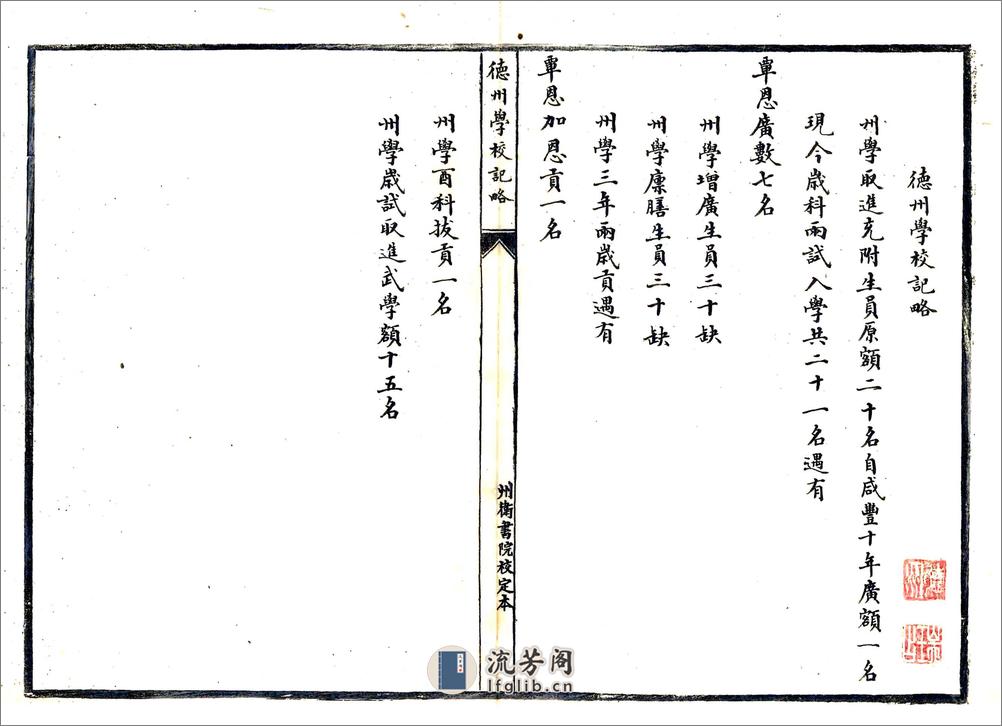 德州學校記略
州學取進充附生員原額二十名自咸豐十年廣額一名
現今歲科兩試入學共二十一名遇有
覃恩廣數七名
州學增廣生員三十缺
州學廩膳生員三十缺
州學三年兩歲貢遇有
覃恩加恩貢一名
德州學校記略
州衛書院校定本
州學酉科拔貢一名
州學歲試取進武學額十五名
流芳阁
lfglib.cn